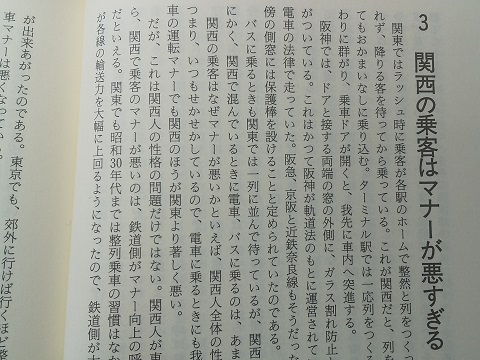 3 関西の乗客はマナーが悪すぎる
関東ではラッシュ時に乗客が各駅のホームで整然と列をつくって
れず、降りる客を待ってから乗っている。これが関西だと、列を
てもおかまいなしに乗り込む。ターミナル駅では一応列をつく
わりに群がり、乗車ドアが開くと、我先に車内へ突進する。
阪神では、ドアと接する両端の窓の外側に、ガラス割れ防止
がついている。これはかつて阪神が軌道法のもとに運営されて
電車の法律で走っていた。阪急、京阪と近鉄奈良線もそうだっ
傍の側窓には保護棒を設けることと定められていたのである。
バスに乗るときも関東では一列に並んで待っているが、関西
にかく、関西で混んでいるときに電車、バスに乗るのは、あま
関西の乗客はなぜマナーが悪いかといえば、関西人全体の性
つまり、いつもせかせかしているので、電車に乗るときにも我
車の運転マナーでも関西のほうが関東より著しく悪い。
だが、これは関西人の性格の問題だけではない。関西人が東
ら、関西で乗客のマナーが悪いのは、鉄道側がマナー向上の呼
だといえる。関東でも昭和30年代までは整列乗車の習慣はなか
が各線の輸送力を大幅に上回るようになったので、鉄道側が大
が出来あがったのである。東京でも、郊外に行けば行くほど整
車マナーは悪くなっていく。